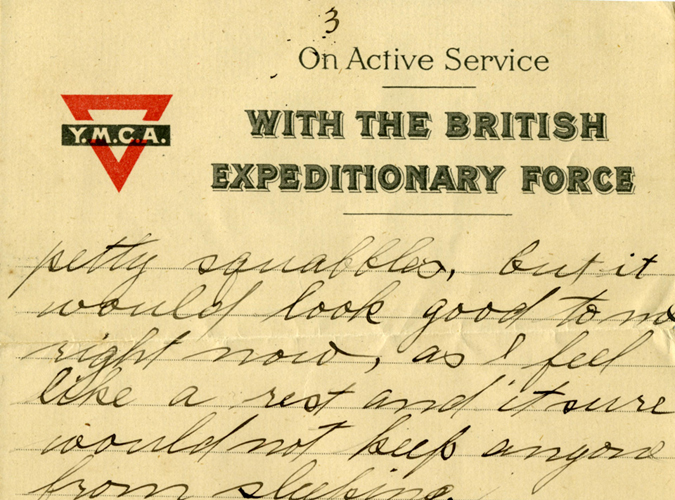 3
On Active Service
Y.M.C.A.
WITH THE BRITISH
EXPEDITIONARY FORCE
petty squabbles, but it
would look good to me
right now, as I feel
like a rest and it sure
would not keep anyone
from sleeping.